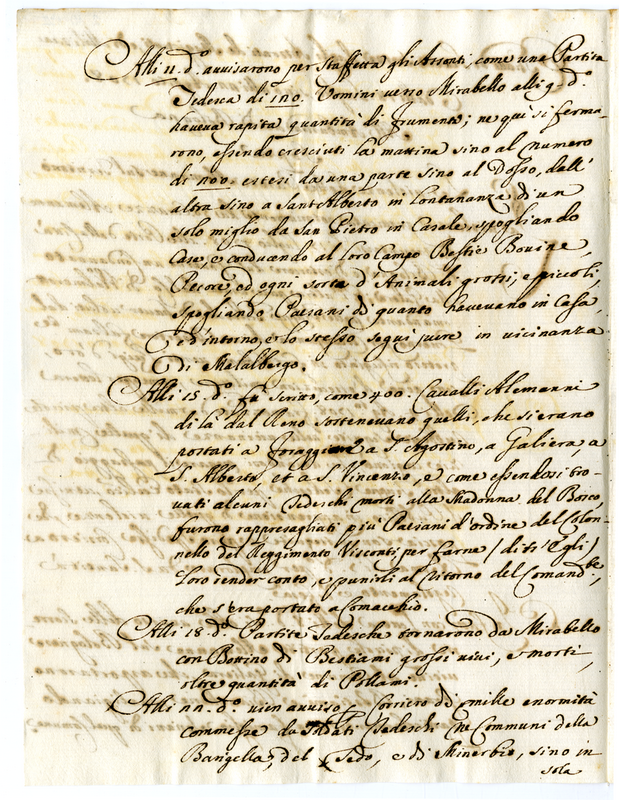 Alli 11. d.º avvisarono per Staffetta gli Assonti, come una Partita
Tedesca di 150. Uomini verso Mirabello alli 9. d.º
haveva rapita quantità di frumenti; ne qui si ferma-
rono, essendo cresciuti la mattina sino al Numero
di estesi da una parte sino al Dosso, dall'
altra sino a Sant'Alberto in Lontananza di un
solo miglio da San Pietro in Casale, spogliando
Case, e conducendo al loro Campo Bestie Bovine,
Pecore, ed ogni sorte d'Animali grossi, e piccoli,
spogliando Paesani di quanto havevano in Casa,
ed intorno, e lo stesso seguì pure in vicinanza
di Malalbergo.
Alli 15 d.º fù scritto, come 400. Cavalli Alemanni
di là dal Reno sostenevano quelli, che si erano
portati a foraggiare a S. Agostino, a Galiera, a
S. Alberto, et a S. Vincenzo, e come essendosi tro-
vati alcuni Tedeschi morti alla Madonna del Bosco,
furono rappresagliati più Paesani d'ordine del Colon-
nello del Reggimento Visconti per farne (diss'Egli)
loro render conto, e punirli al Ritorno del Comand.te,
che s'era portato a Comacchio.
Alli 18 d.º Partite Tedesche tornarono da Mirabello
con Bottino di Bestiami grossi vivi, e morti,
oltre quantità di Pollami.
Alli d.º vien avviso p. Corriero di mille enormità
commesse da Soldati Tedeschi ne Communi della
del e di Minerbio, sino in
sola